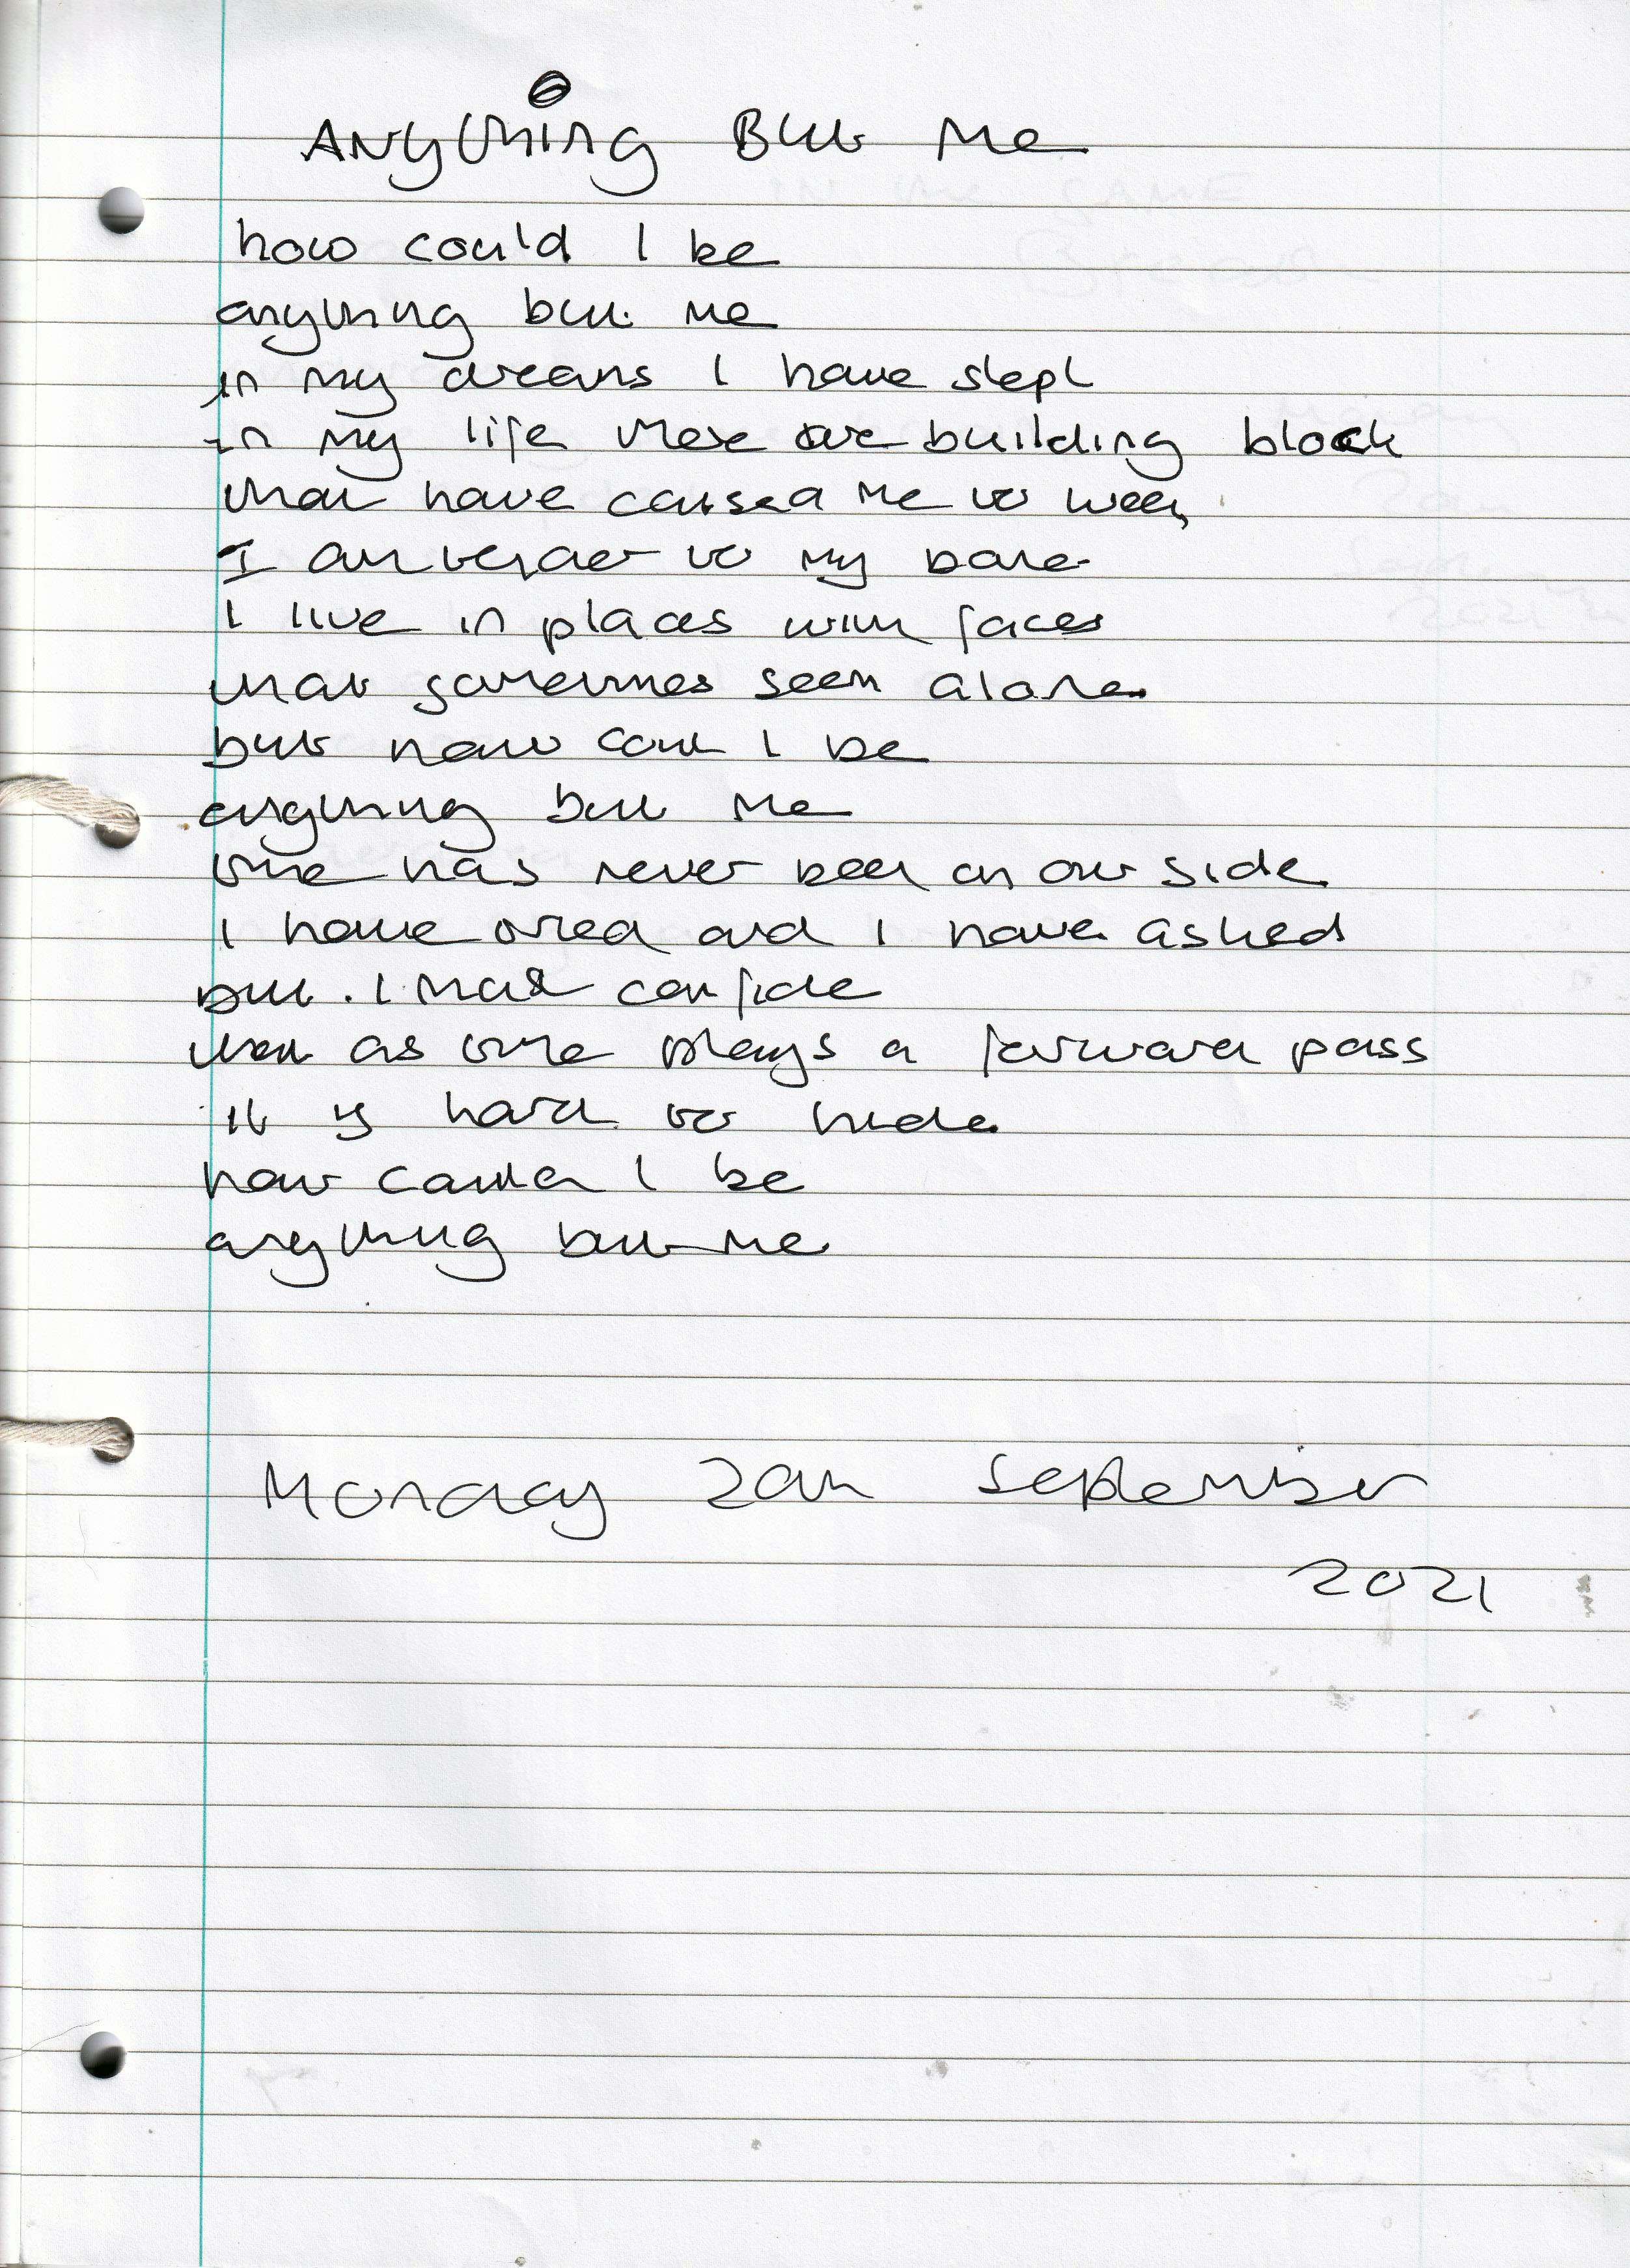 Anything But Me
how could I be
anything but me
in my dreams I have slept
in my life there are building block
that have caused me to weep
I am tender to my bone
I live in places with faces
that sometimes seem alone
but how can I be
anything but me
time has never been on our side
I have tried and I have asked
but I must confide
that as time plays a forward pass
it is hard to hide
how could I be
anything but me
Monday 20th September
2021